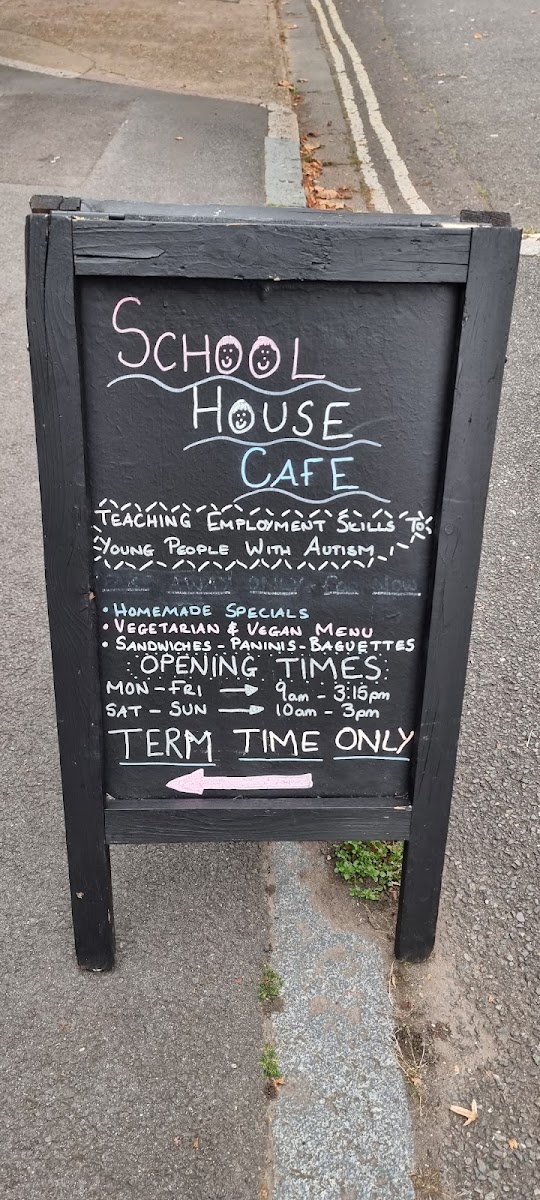 SCHOOL
HOUSE
CAFE
TEACHING EMPLOYMENT SKILLS TO
YOUNG PEOPLE WITH AUTISM
• HOMEMADE SPECIALS
• VEGETARIAN & VEGAN MENU
• SANDWICHES - PANINIS - BAGUETTES
OPENING TIMES
MON - FRI → 9am - 3:15pm
SAT - SUN → 10am - 3pm
TERM TIME ONLY